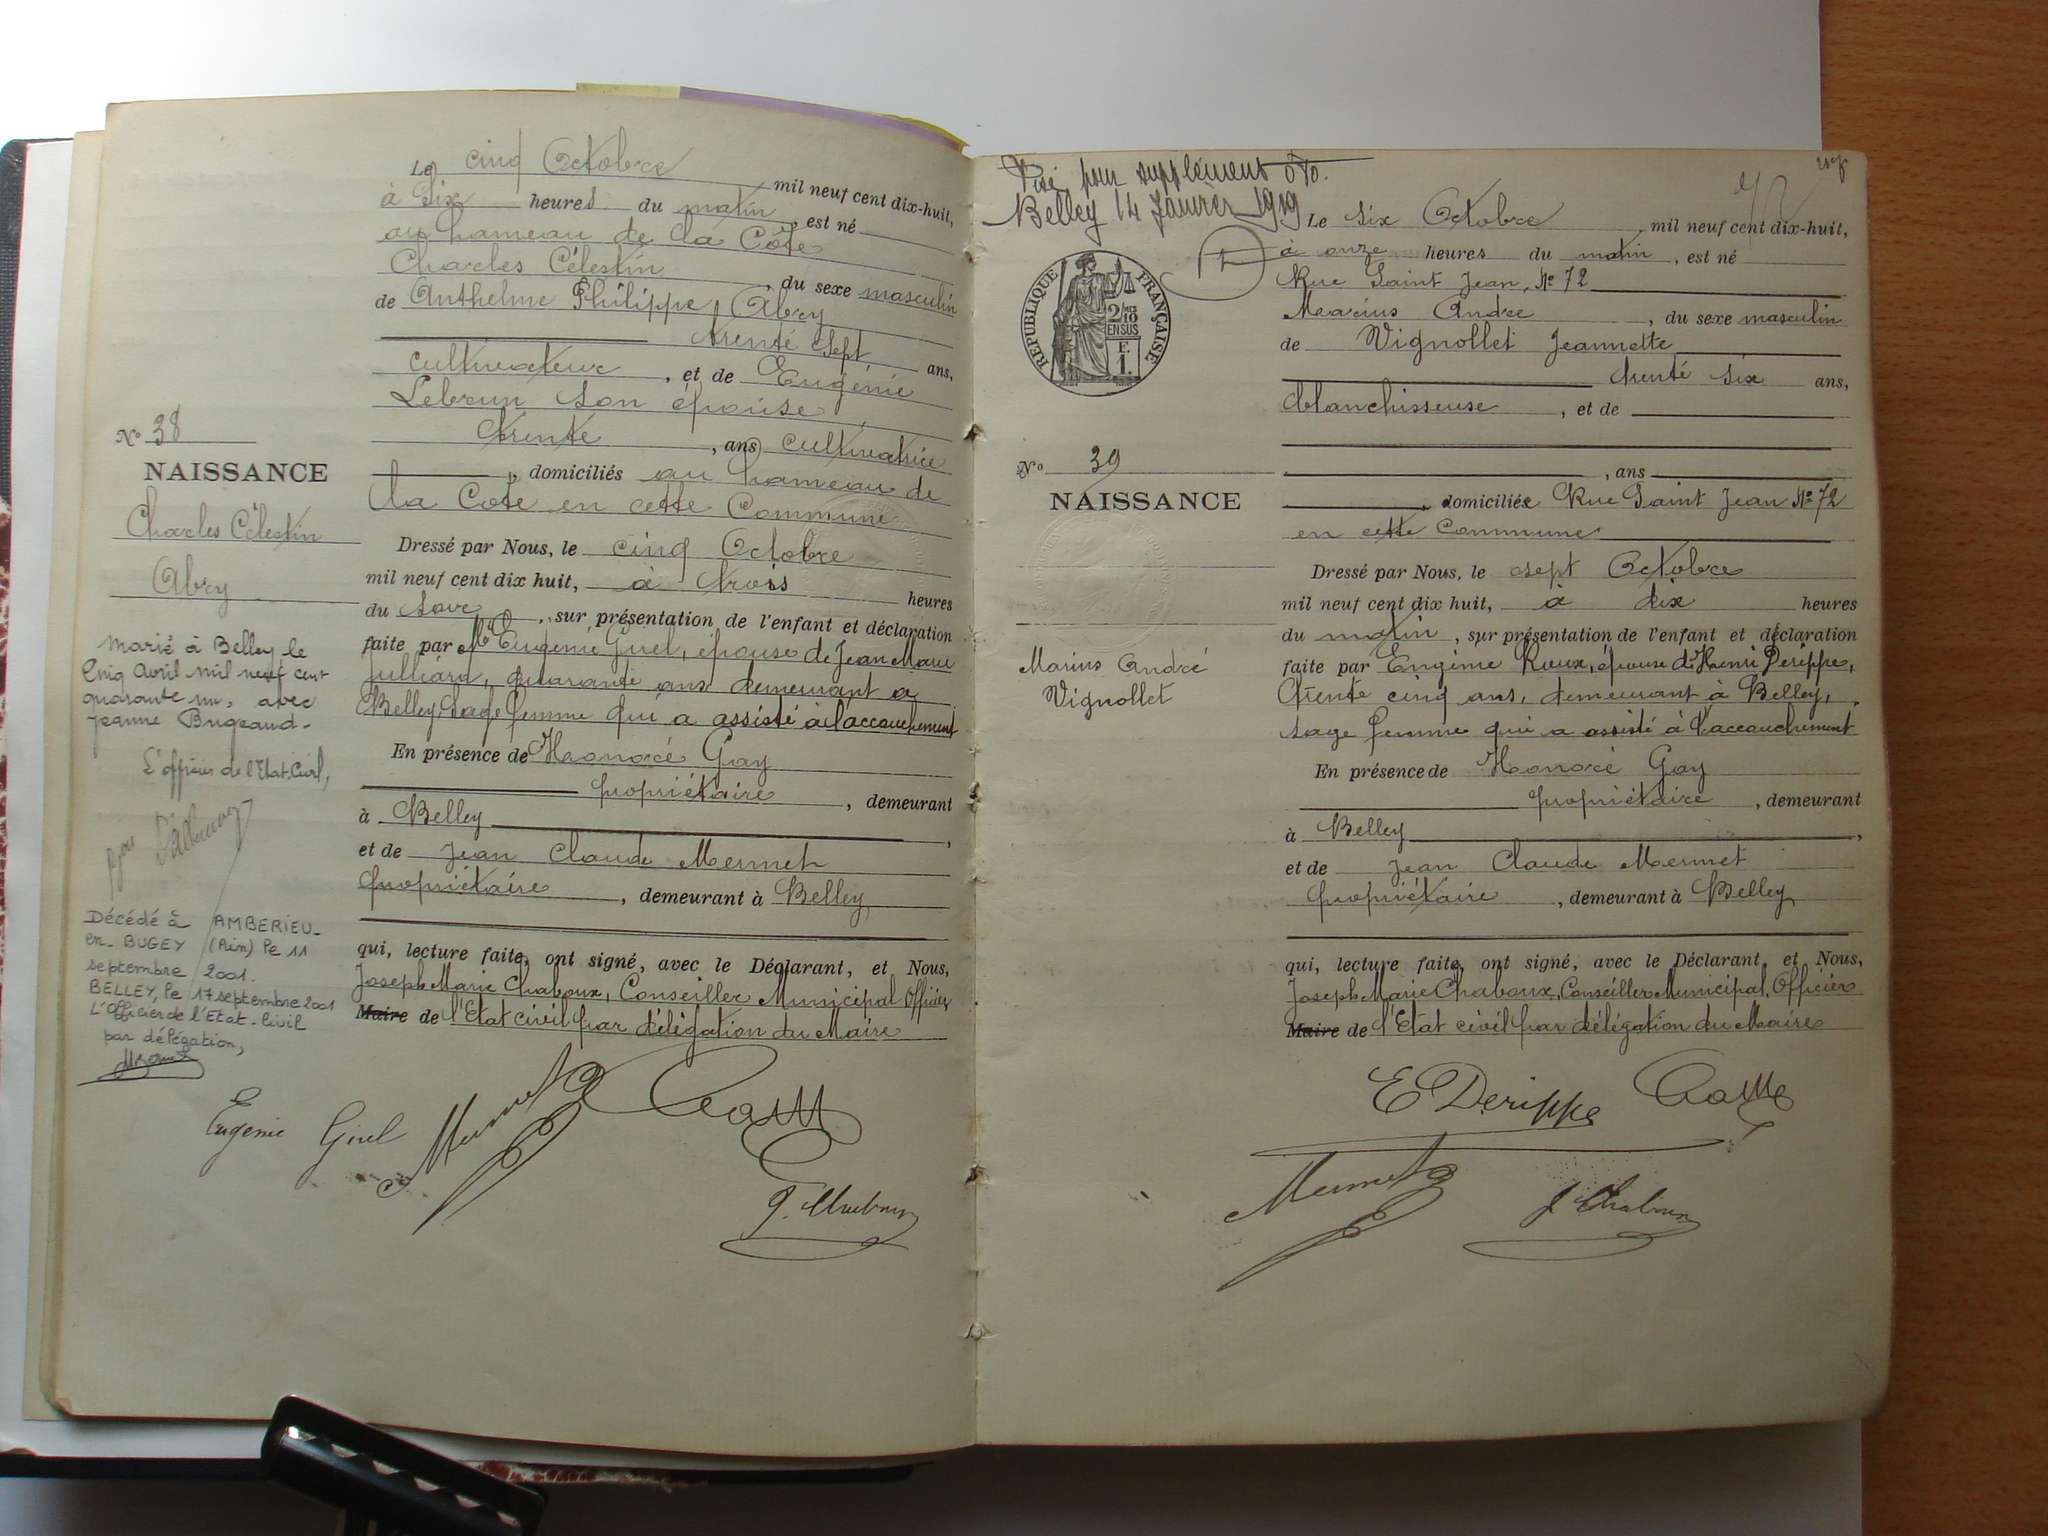 Le cinq Octobre mil neuf cent dix-huit,
à Six heures du matin, est né
au hameau de la Côte
Charles Célestin, du sexe masculin
de Anthelme Philippe Abry
trente sept ans,
cultivateur, et de Eugénie
Lebrun son épouse
trente, ans cultivatrice
, domiciliés au hameau de
la Cote en cette Commune
Dressé par Nous, le cinq Octobre
mil neuf cent dix huit, à trois heures
du soir, sur présentation de l'enfant et déclaration
faite par Eugénie Girel, épouse de Jean Marie
Julliard, quarante ans demeurant à
Belley, Sage femme qui a assisté à l'accouchement
En présence de Honoré Gay
propriétaire, demeurant
à Belley,
et de Jean Claude Mermet
propriétaire, demeurant à Belley
qui, lecture faite, ont signé, avec le Déclarant, et Nous,
Joseph Marie Chaboux, Conseiller Municipal Officier
Maire de l'Etat civil par délégation du Maire
Eugénie Girel Mermet
No 38
NAISSANCE
Charles Célestin
Abry
Marié à Belley le
Cinq Avril mil neuf cent
quarante un, avec
Jeanne Bugeaud.
L'officier de l'Etat-Civil,
Décédé à AMBERIEU-
en-BUGEY (Ain) le 11
septembre 2001.
BELLEY, le 17 septembre 2001
L'Officier de l'Etat-Civil
par délégation,
Visé pour supplément
Belley 14 Janvier 1919
RÉPUBLIQUE FRANÇAISE
2/10
EN SUS
F.
1.
Le six Octobre mil neuf cent dix-huit,
à onze heures du matin, est né
Rue Saint Jean, No 72
Marius André, du sexe masculin
de Vignollet Jeannette
trente six ans,
blanchisseuse, et de
, ans
, domiciliée Rue Saint Jean No 72
en cette Commune
Dressé par Nous, le sept Octobre
mil neuf cent dix huit, à dix heures
du matin, sur présentation de l'enfant et déclaration
faite par Eugénie Roux, épouse de Henri Derippe,
trente cinq ans, demeurant à Belley,
sage femme qui a assisté à l'accouchement
En présence de Honoré Gay
propriétaire, demeurant
à Belley,
et de Jean Claude Mermet
propriétaire, demeurant à Belley
qui, lecture faite, ont signé, avec le Déclarant, et Nous,
Joseph Marie Chaboux, Conseiller Municipal, Officier
Maire de l'Etat civil par délégation du Maire
E Derippe
Mermet J. Chaboux
No 39
NAISSANCE
Marius André
Vignollet